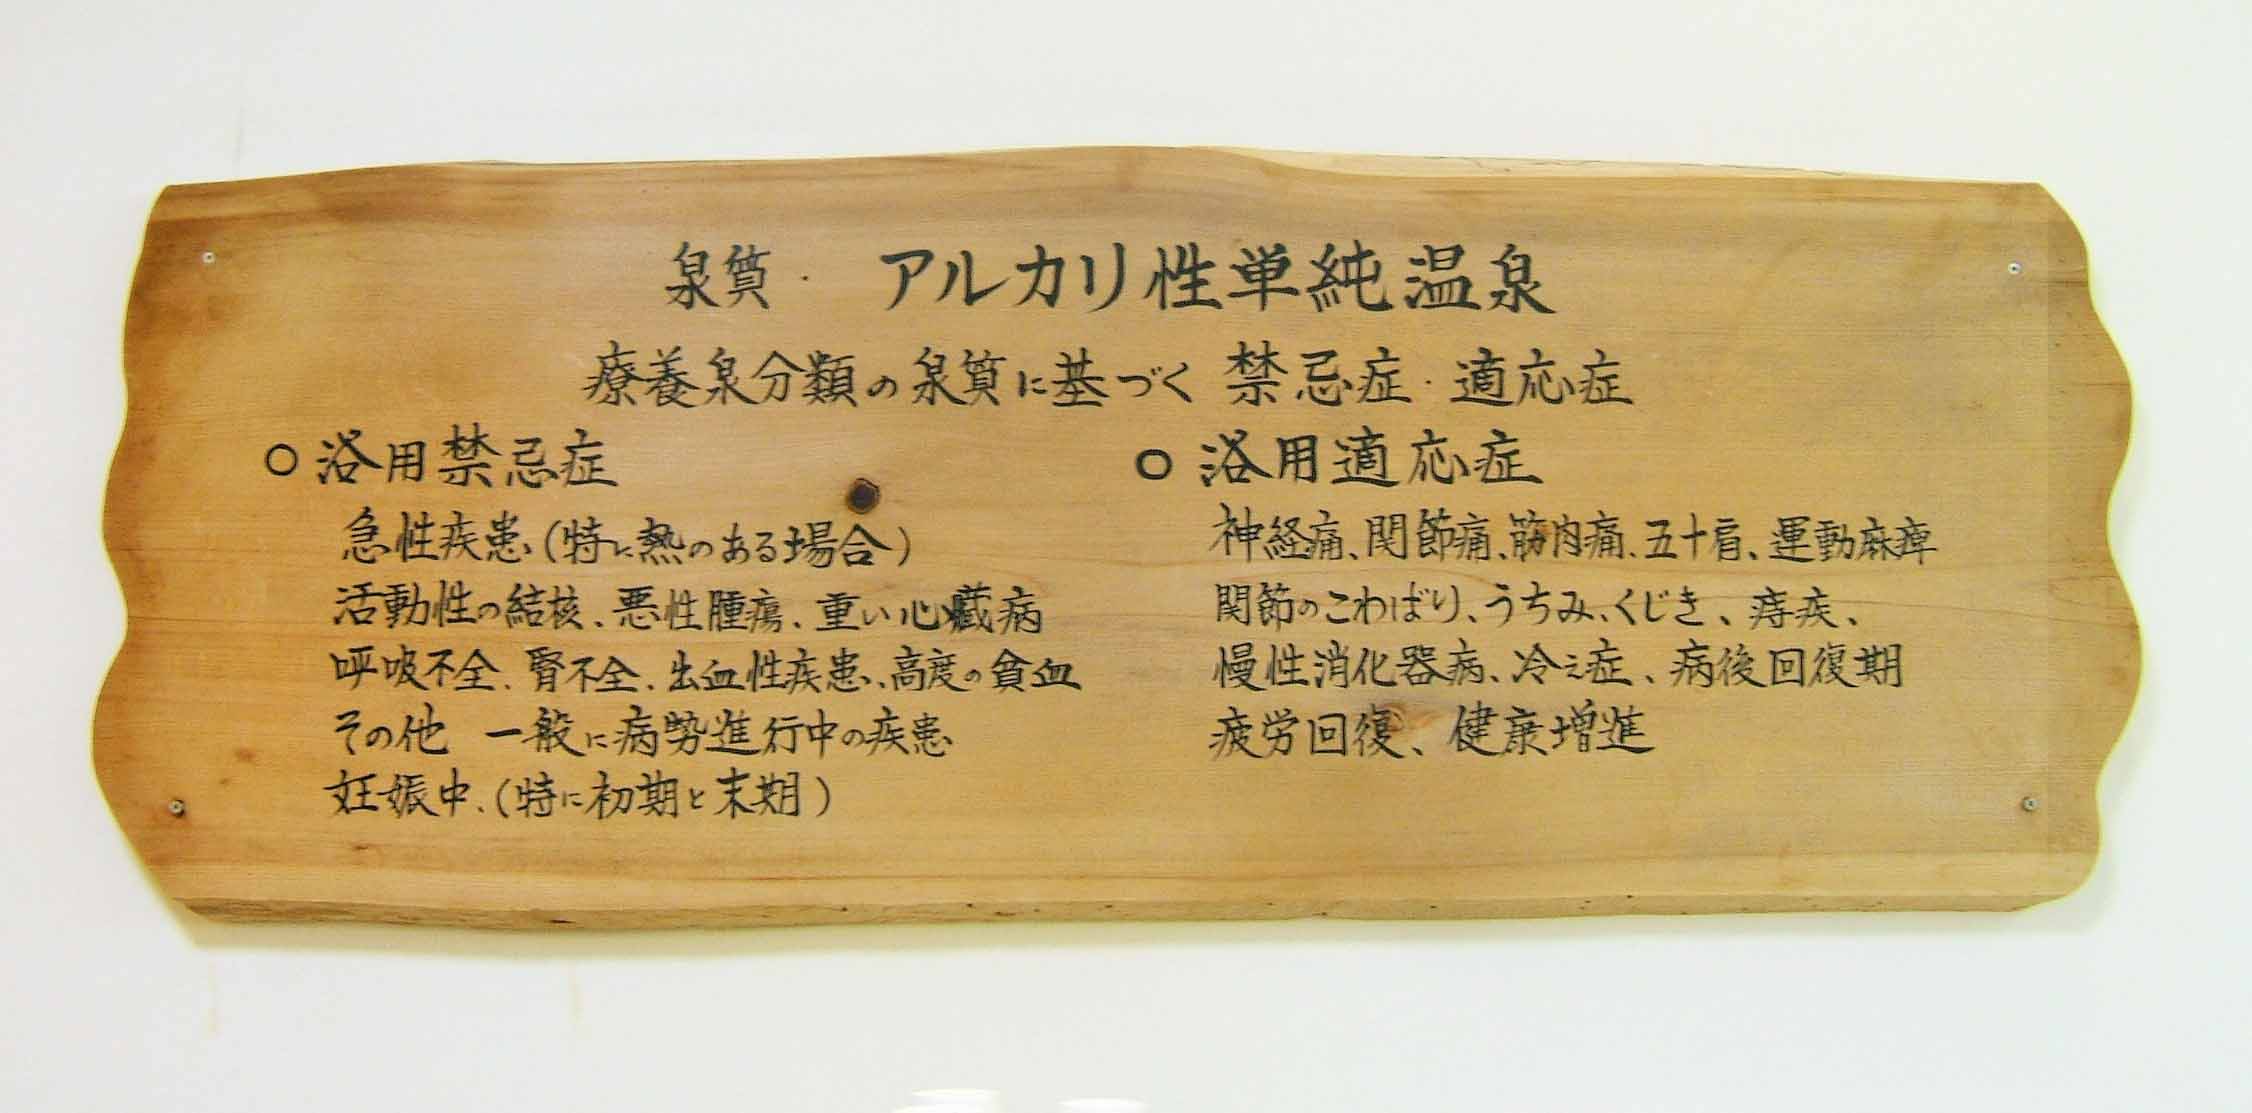 泉質・ アルカリ性単純温泉
療養泉分類の泉質に基づく 禁忌症・適応症
○浴用禁忌症
急性疾患(特に熱のある場合)
活動性の結核、悪性腫瘍、重い心臓病
呼吸不全、腎不全、出血性疾患、高度の貧血
その他 一般に病勢進行中の疾患
妊娠中、(特に初期と末期)
○浴用適応症
神経痛、関節痛、筋肉痛、五十肩、運動麻痺
関節のこわばり、うちみ、くじき、痔疾、
慢性消化器病、冷え症、病後回復期
疲労回復、健康増進